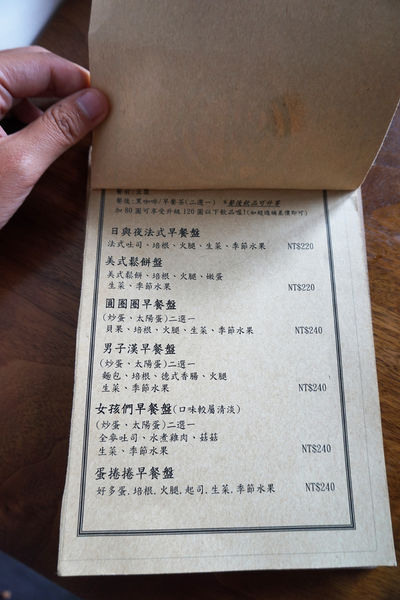 餐後:黑咖啡/早餐茶(二選一) *餐後飲品可外帶
加80圓可享受升級120圓以下飲品喔!(如超過補差價即可)
日與夜法式早餐盤
法式吐司、培根、火腿、生菜、季節水果 NT$220
美式鬆餅盤
美式鬆餅、培根、火腿、嫩蛋
生菜、季節水果 NT$220
圓圈圈早餐盤
(炒蛋、太陽蛋)二選一
貝果、培根、火腿、生菜、季節水果 NT$240
男子漢早餐盤
(炒蛋、太陽蛋)二選一
麵包、培根、德式香腸、火腿
生菜、季節水果 NT$240
女孩們早餐盤(口味較屬清淡)
(炒蛋、太陽蛋)二選一
全麥吐司、水煮雞肉、菇菇
生菜、季節水果 NT$240
蛋捲捲早餐盤
好多蛋,培根,火腿,起司,生菜,季節水果 NT$240